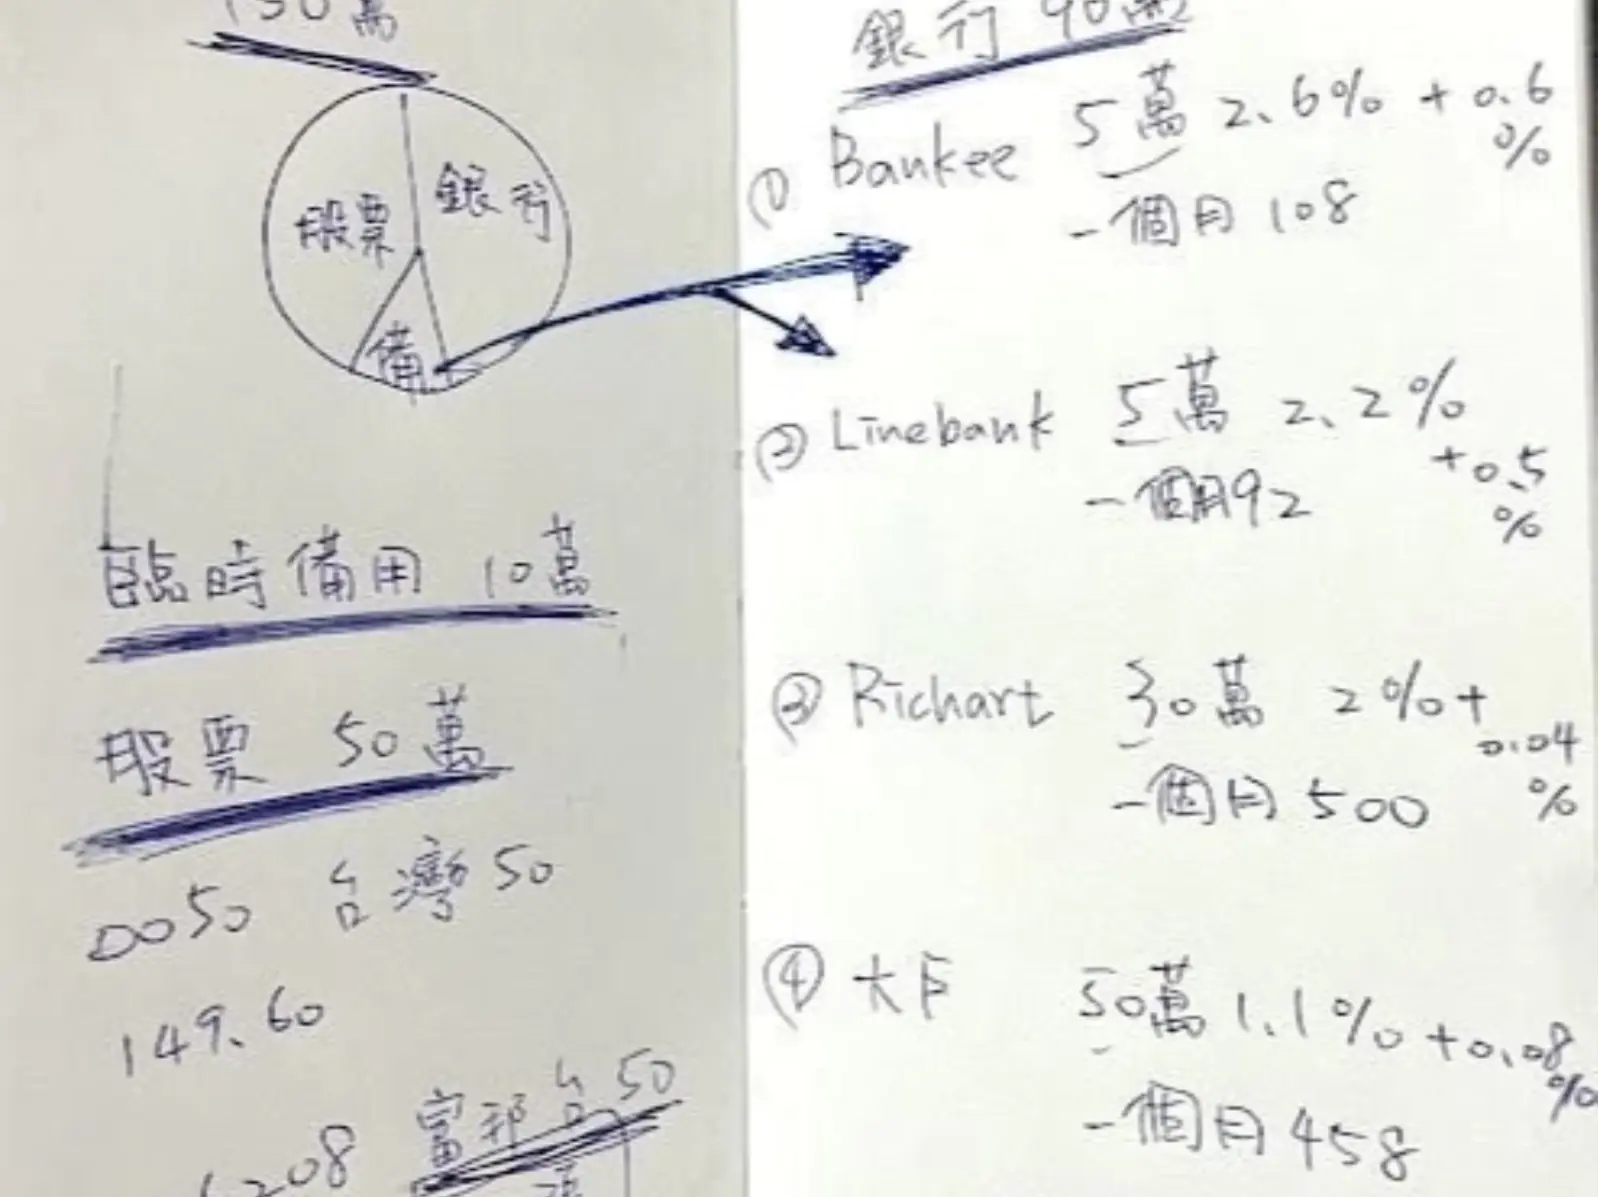 150萬
股票
銀行
備
臨時備用 10萬
股票 50萬
0050 台灣50
149.60
6208 富邦台50
銀行 90萬
① Bankee 5萬 2.6% + 0.6%
一個月 108
② Linebank 5萬 2.2% +0.5%
一個月92
③ Richart 30萬 2%+ 0.04%
一個月 500
④ 大戶 50萬 1.1% +0.08%
一個月 458